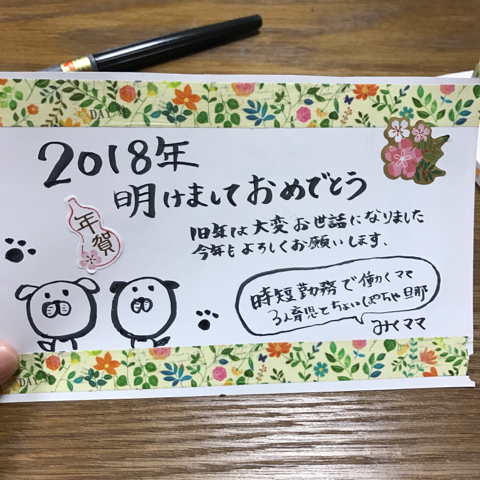 2018年
明けましておめでとう
旧年は大変お世話になりました
今年もよろしくお願いします.
年賀
時短勤務で働くママ
3人育児とちょいぽちゃ旦那
みくママ